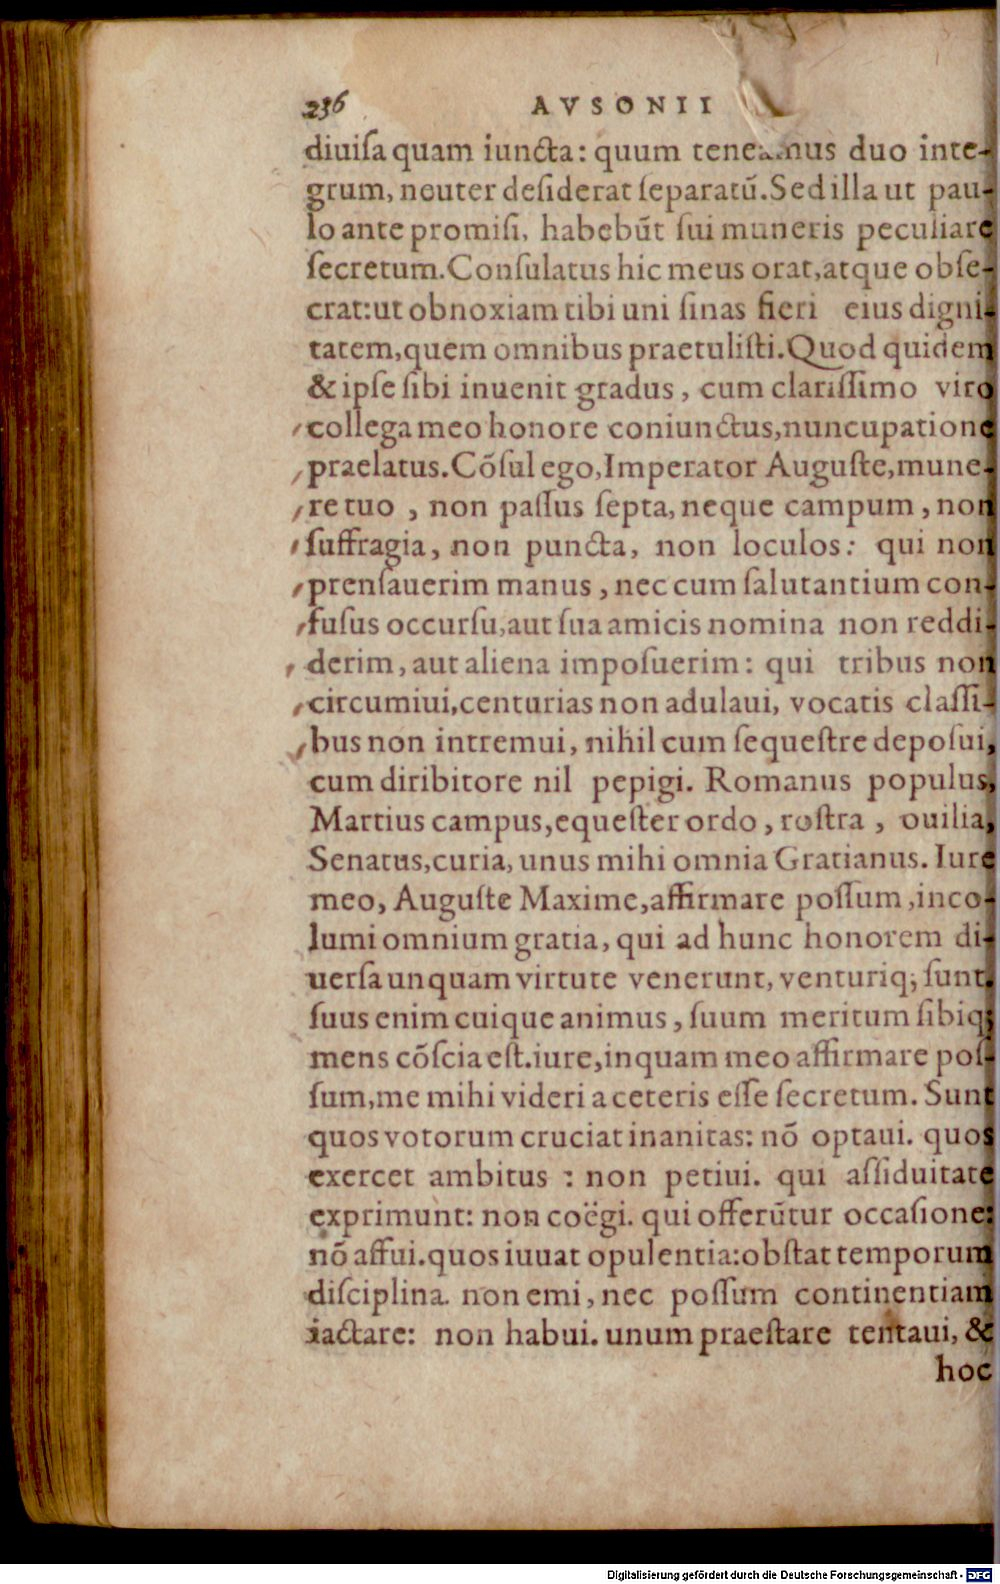 236 AVSONII
diuiſa quam iuncta: quum teneamus duo inte-
grum, neuter deſiderat ſeparatū. Sed illa ut pau-
lo ante promiſi, habebūt ſui muneris peculiare
ſecretum. Conſulatus hic meus orat, atque obſe-
crat: ut obnoxiam tibi uni ſinas fieri eius digni-
tatem, quem omnibus praetuliſti. Quod quidem
& ipſe ſibi inuenit gradus, cum clariſſimo viro
collega meo honore coniunctus, nuncupatione
praelatus. Cōſul ego, Imperator Auguſte, mune-
re tuo, non paſſus ſepta, neque campum, non
ſuffragia, non puncta, non loculos: qui non
prenſauerim manus, nec cum ſalutantium con-
fuſus occurſu, aut ſua amicis nomina non reddi-
derim, aut aliena impoſuerim: qui tribus non
circumiui, centurias non adulaui, vocatis claſſi-
bus non intremui, nihil cum ſequeſtre depoſui,
cum diribitore nil pepigi. Romanus populus,
Martius campus, equeſter ordo, roſtra, ouilia,
Senatus, curia, unus mihi omnia Gratianus. Iure
meo, Auguſte Maxime, affirmare poſſum, inco-
lumi omnium gratia, qui ad hunc honorem di-
uerſa unquam virtute venerunt, venturiq; ſunt.
ſuus enim cuique animus, ſuum meritum ſibiq;
mens cōſcia eſt. iure, inquam meo affirmare poſ-
ſum, me mihi videri a ceteris eſſe ſecretum. Sunt
quos votorum cruciat inanitas: nō optaui. quos
exercet ambitus: non petiui. qui aſſiduitate
exprimunt: non coëgi. qui offerūtur occaſione:
nō affui. quos iuuat opulentia: obſtat temporum
diſciplina. non emi, nec poſſum continentiam
iactare: non habui. unum praeſtare tentaui, &
hoc
Digitalisierung gefördert durch die Deutsche Forschungsgemeinschaft - DFG